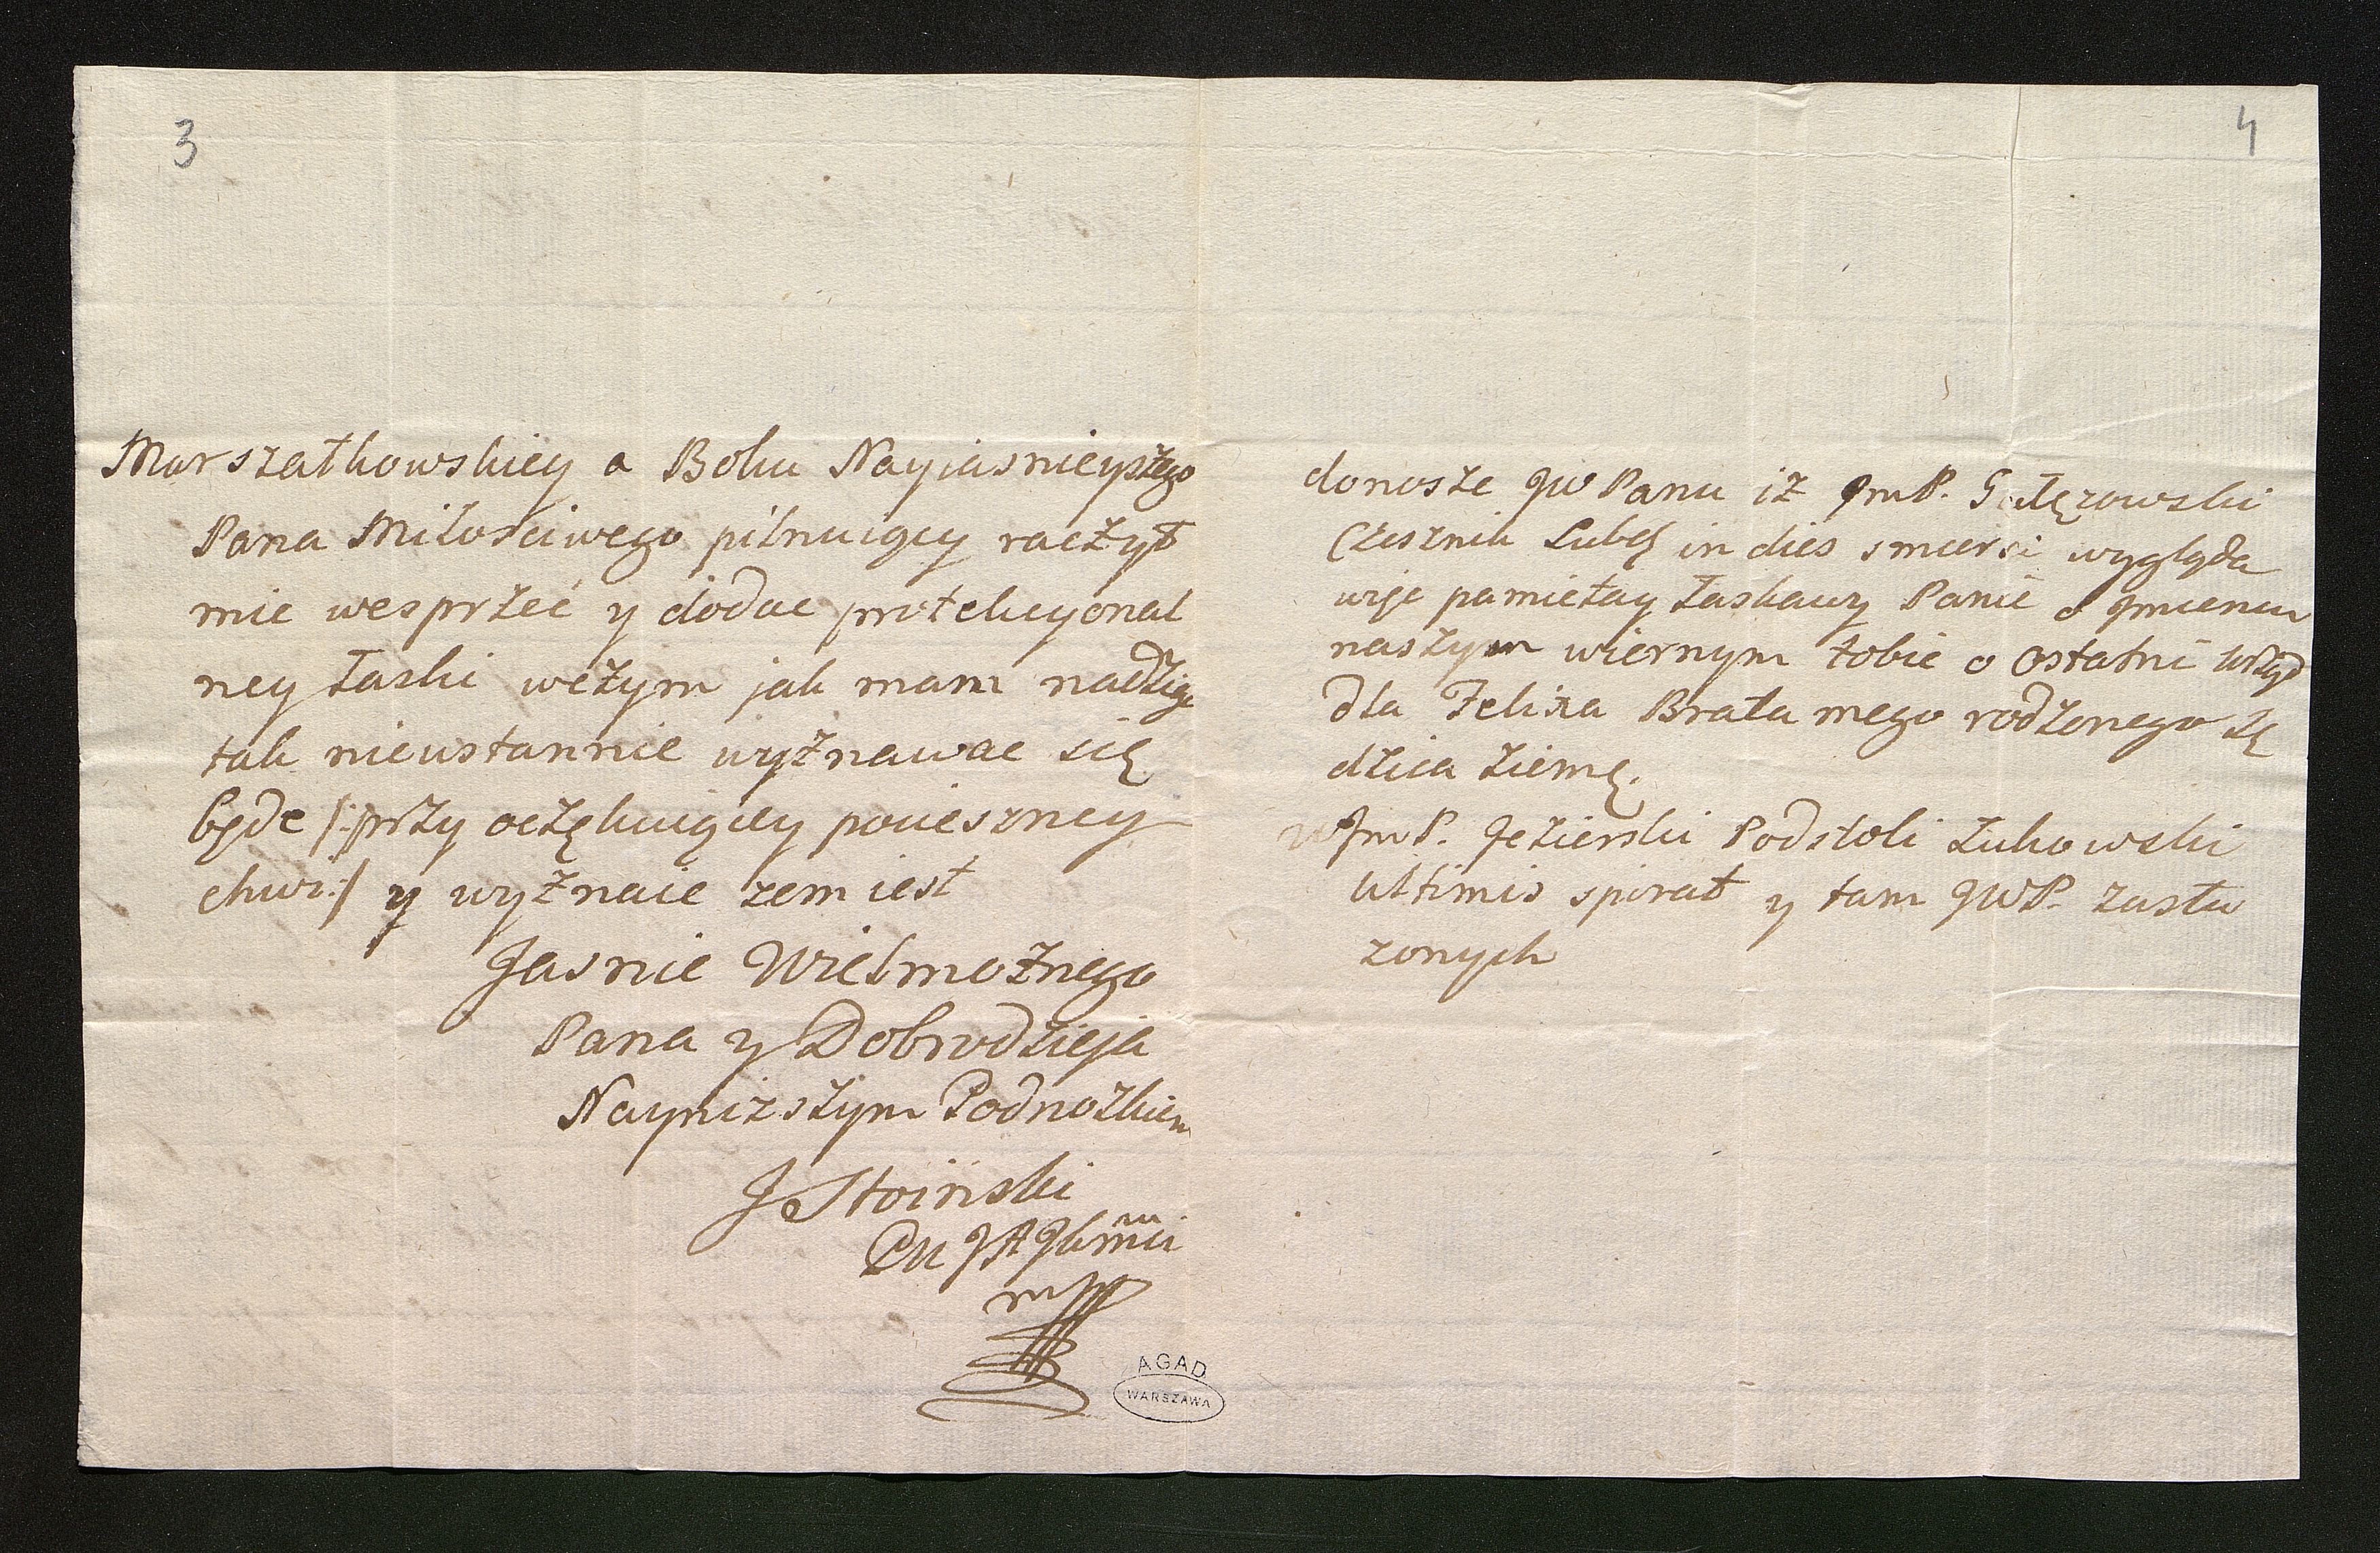 3
Marszałkowskiey a Boku Nayiasnieyszego
Pana Miłościwego pilnuiący raczył
mie wesprzeć y dodac protekcyonal
ney łaski wczym jak mam nadzieię
tak nieustannie wyznawac się
będe /: przy oczękuiącey pocieszney
chwi :/ y wyznaie zem iest
Jasnie Wielmożnego
Pana y Dobrodzieja
Naynizszym Podnożkiem
J Stoiński
mp
AGAD
WARSZAWA
4
donosze JW Panu iż JmP. Gałęzowski
Czesznik Lubę in dies smierci wygląda
więc pamietay łaskawy Panie o Jmieniu
naszym wiernym tobie o ostatni Urząd
dla Felixa Brata mego rodzonego Sę
dzica Ziemę.
JmP. Jezierski Podstoli Łukowski
Ultimis spirat y tam JWP. zasłu
zonych